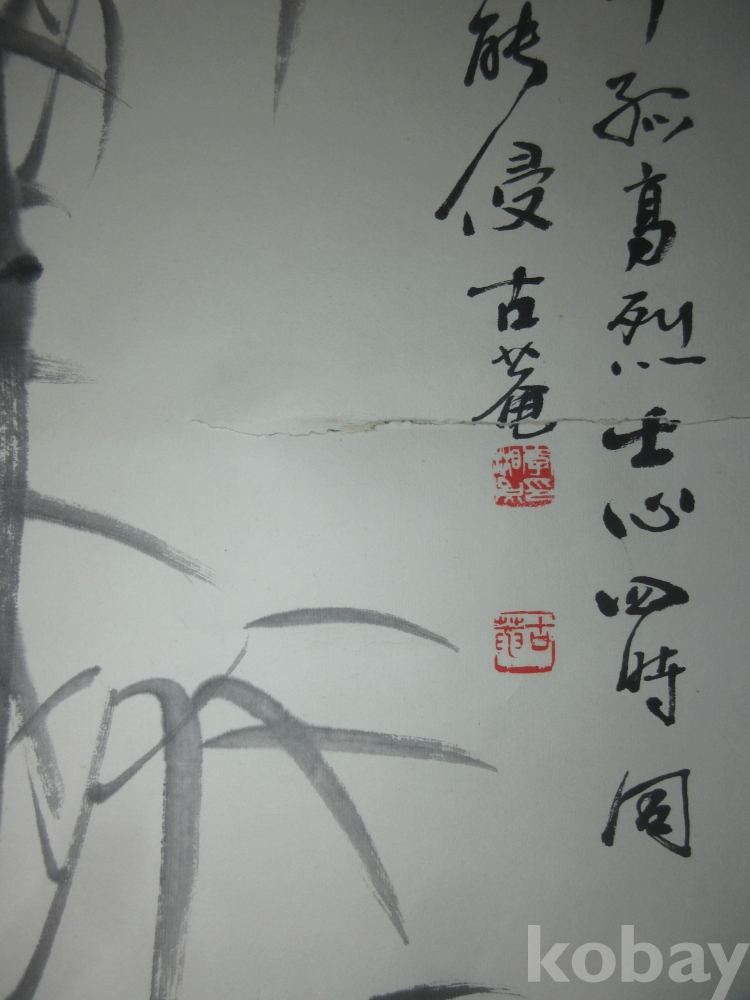 孤高烈士心四時同
能侵古菴
古菴
kobay